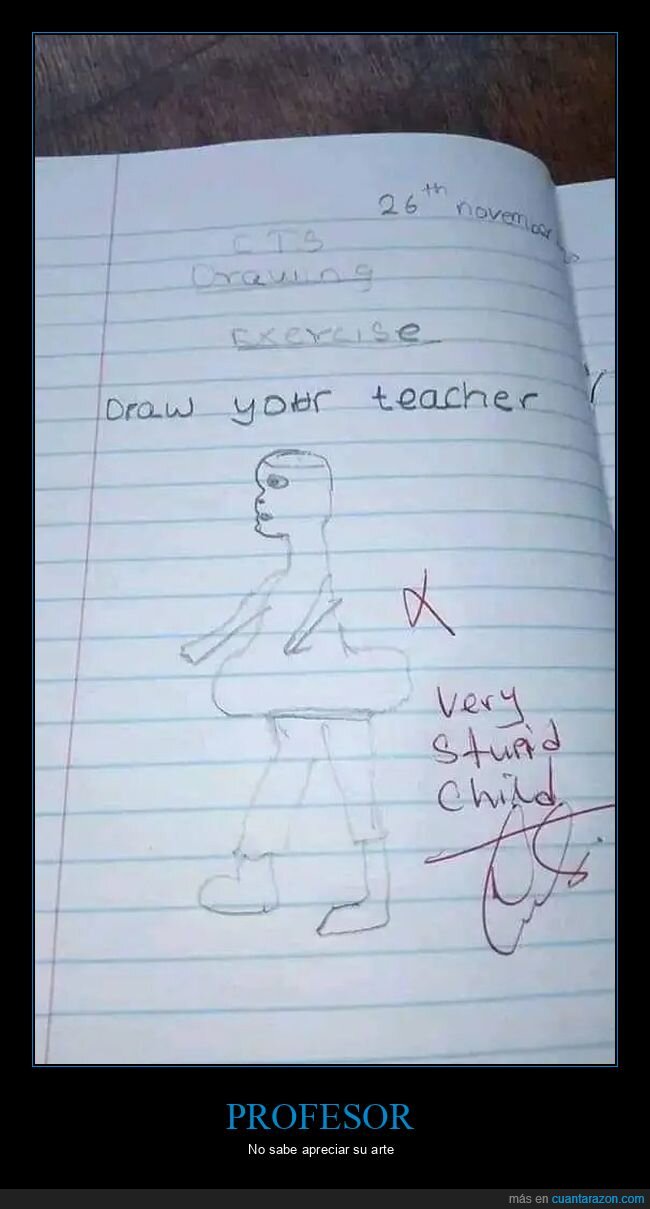 26th november
CTS
Drawing
Exercise
Draw your teacher
Very
Stupid
Child
PROFESOR
No sabe apreciar su arte
más en cuantarazon.com